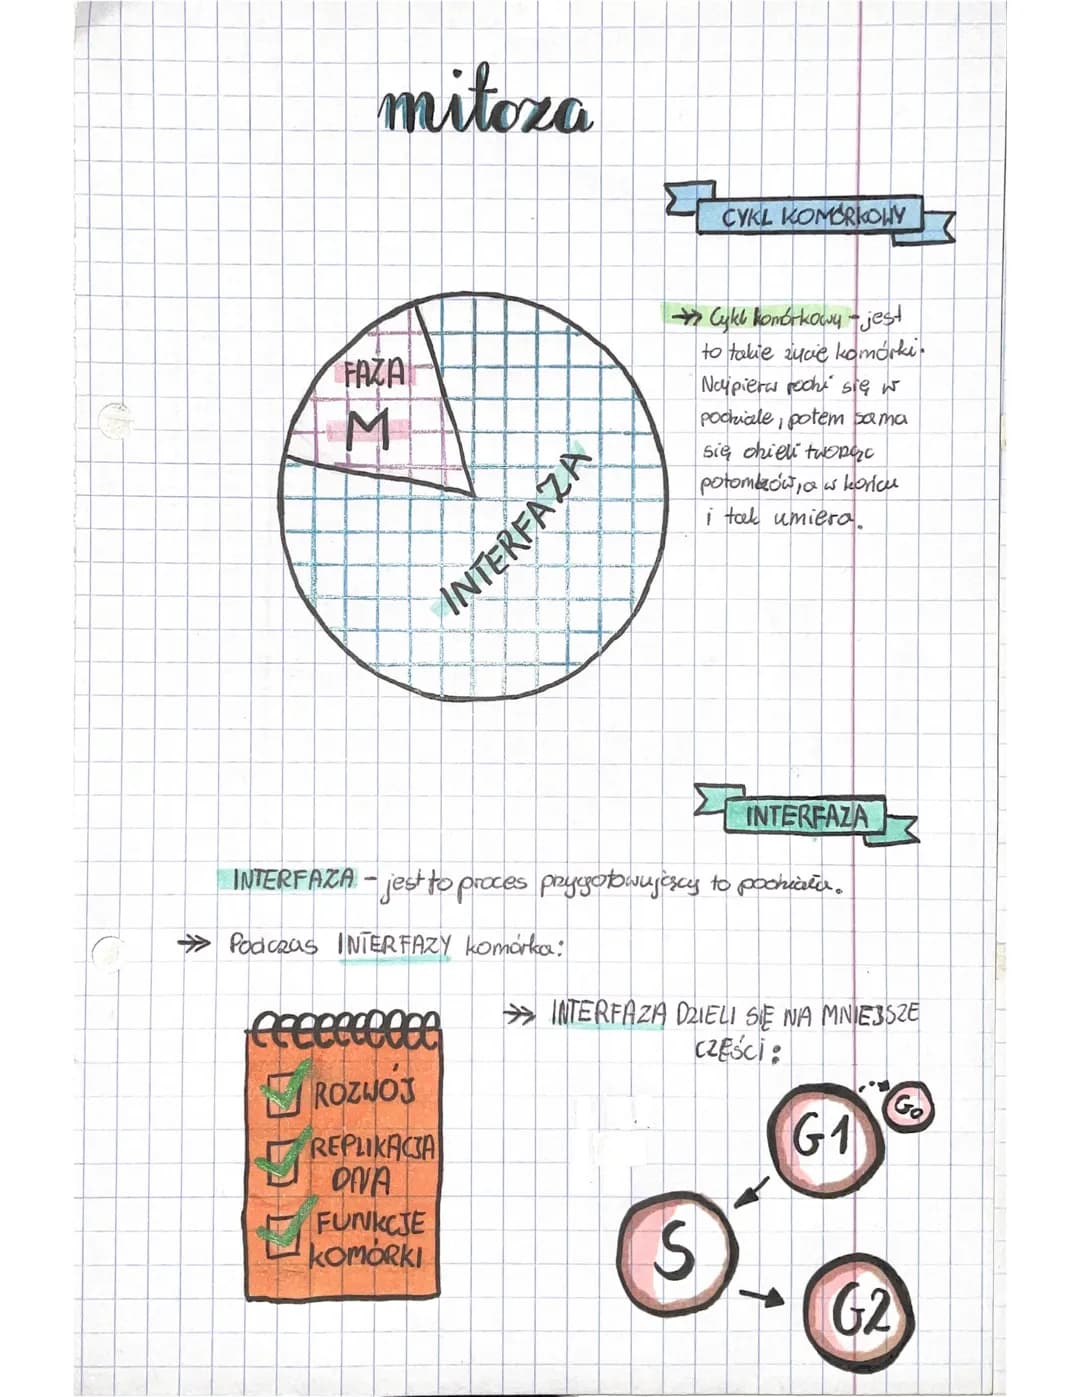 mitoza
CYKL KOMÓRKOWY
FAZA
M
INTERFAZA
Cykl komórkowy - jest
to takie życie komórki.
Najpierw rodzi się w
podziale, potem sama
się dzieli tworząc
potomków, a w końcu
i tak umiera.
INTERFAZA
INTERFAZA - jest to proces przygotowujący to podziału.
Podczas INTERFAZY komórka:
ROZWÓJ
REPLIKACJA
DNA
FUNKCJE
KOMÓRKI
INTERFAZA DZIELI SIĘ NA MNIEJSZE
CZĘŚCI:
G1
G0
S
G2